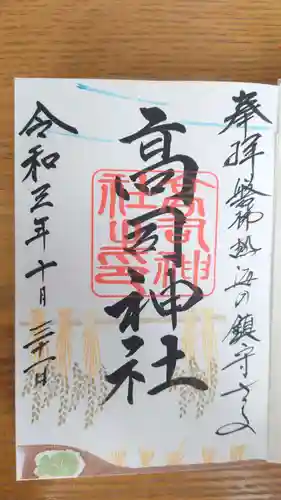 奉拝 磐梯熱海の鎮守さま
高司神社
高司神
社之印
令和三年十月三十一日